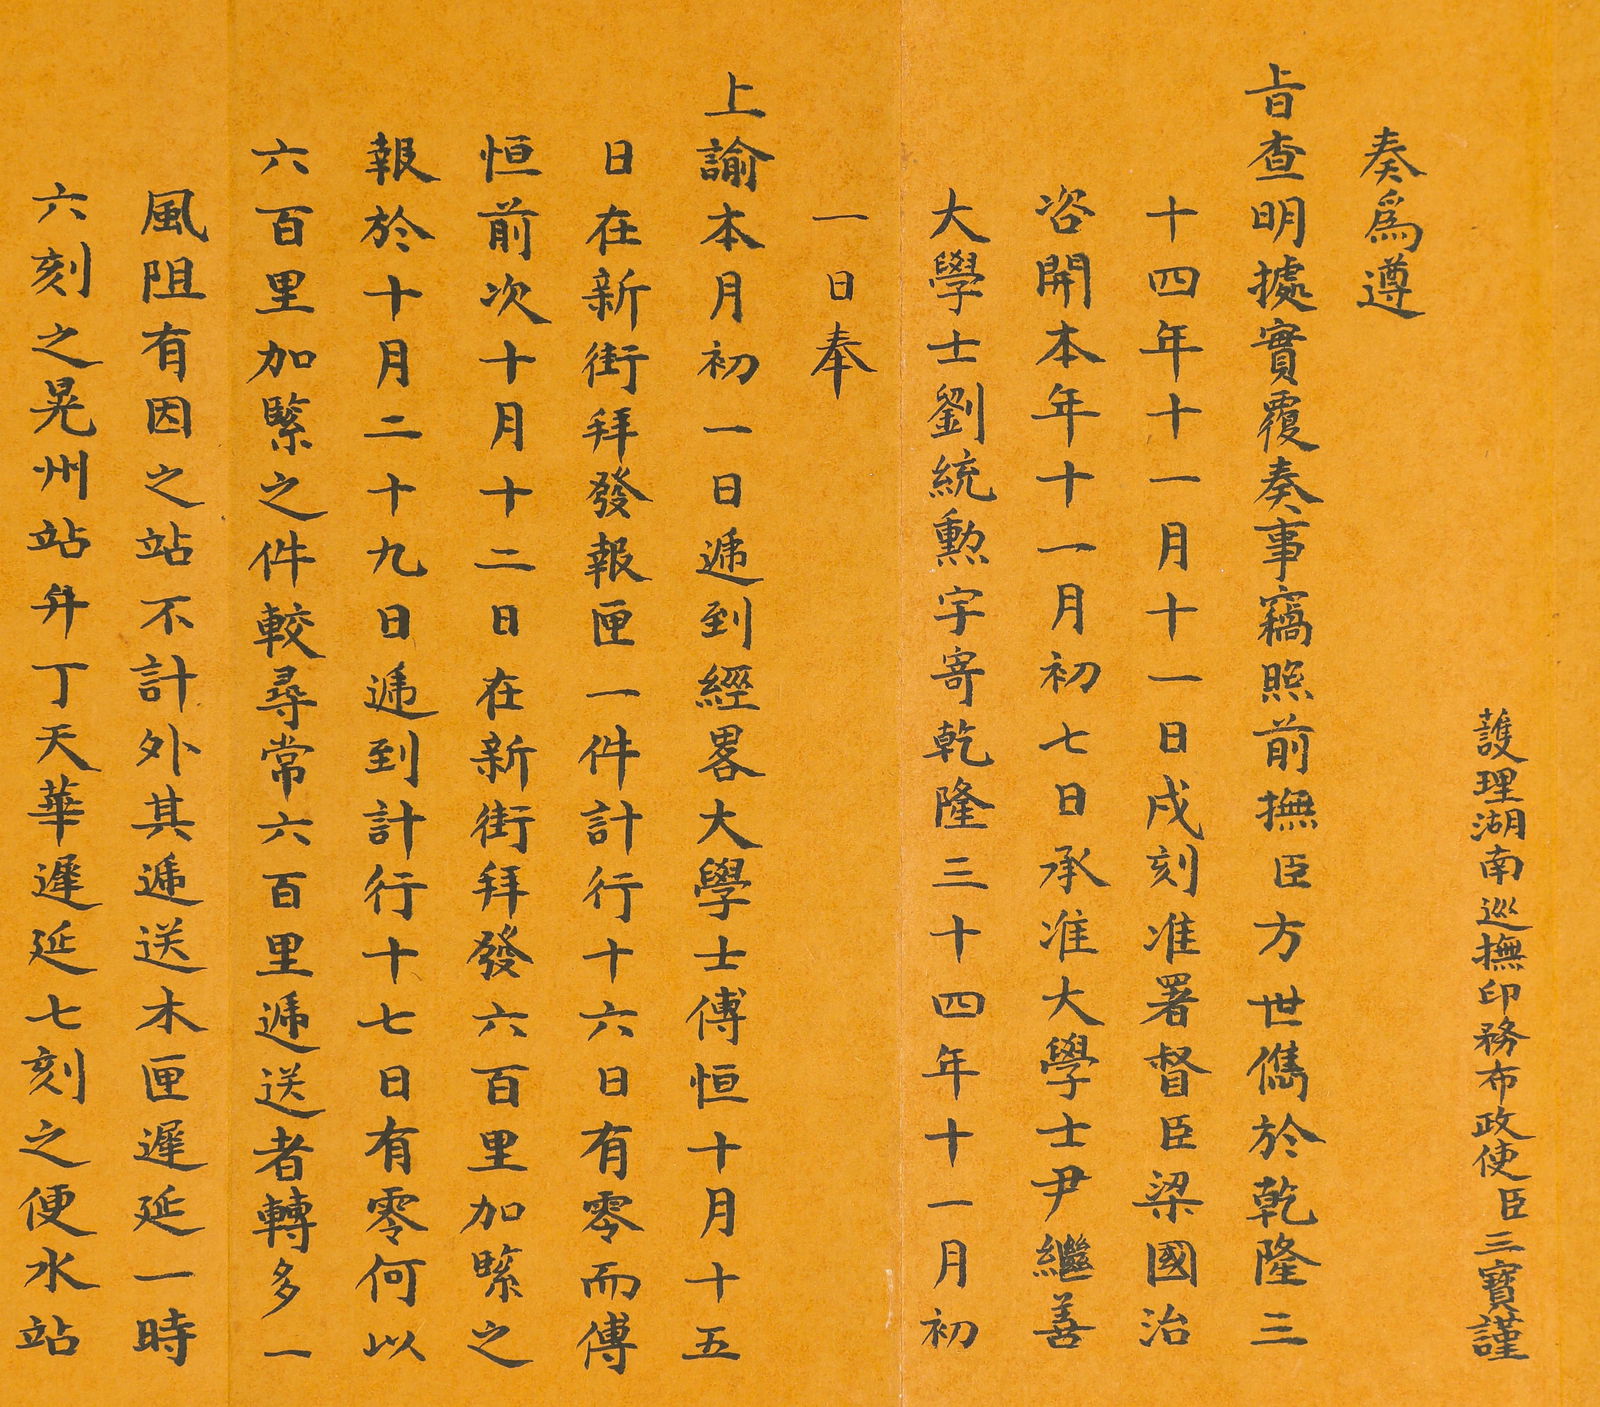 護理湖南巡撫印務布政使臣三寳謹
奏爲遵
旨查明據實覆奏事竊照前撫臣方世儁於乾隆三
十四年十一月十一日戌刻准署督臣梁國治
咨開本年十一月初七日承准大學士尹繼善
大學士劉統勲字寄乾隆三十四年十一月初
一日奉
上諭本月初一日遞到經畧大學士傅恒十月十五
日在新街拜發報匣一件計行十六日有零而傅
恒前次十月十二日在新街拜發六百里加緊之
報於十月二十九日遞到計行十七日有零何以
六百里加緊之件較尋常六百里遞送者轉多一
風阻有因之站不計外其遞送木匣遲延一時
六刻之晃州站弁丁天華遲延七刻之便水站